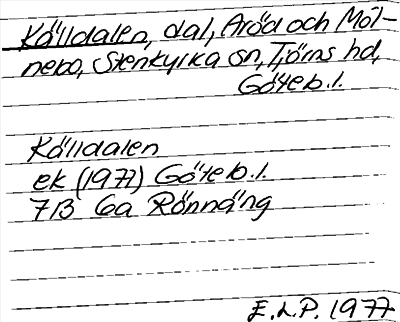 Källdalen, dal, Aröd och Möl-
nebo, Stenkyrka sn, Tjörns hd,
Göteb.l.
Källdalen
ek (1977) Göteb.l.
7B 6a Rönnäng
E.L.P. 1977